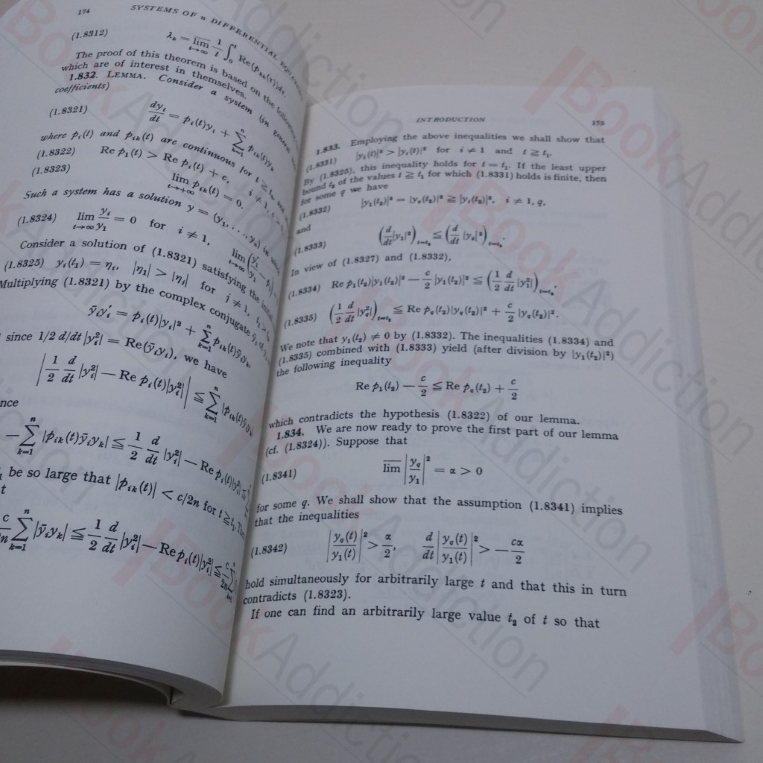 174 SYSTEMS OF n DIFFERENTIAL
(1.8312) λₖ = lim̅_{t→∞} 1/t ∫₀ᵗ Re(pₖₖ(τ))dτ
The proof of this theorem is based on the following
which are of interest in themselves.
1.832. LEMMA. Consider a system (in general
coefficients)
(1.8321) dyᵢ/dt = pᵢ(t)yᵢ + Σₖ₌₁ⁿ pᵢₖ(t)yₖ
where pᵢ(t) and pᵢₖ(t) are continuous for t ≧ t₀
(1.8322) Re p₁(t) > Re pᵢ(t) + c, i ≠ 1, c >
(1.8323) lim_{t→+∞} pᵢₖ(t) = 0.
Such a system has a solution y = (y₁, . . ., yₙ)
(1.8324) lim_{t→∞} yᵢ/y₁ = 0 for i ≠ 1, lim
Consider a solution of (1.8321) satisfying the
(1.8325) yᵢ(t₁) = ηᵢ, |η₁| > |ηᵢ| for i ≠ 1,
Multiplying (1.8321) by the complex conjugate ȳᵢ of
ȳᵢyᵢ′ = pᵢ(t)|yᵢ|² + Σₖ₌₁ⁿ pᵢₖ(t)ȳᵢyₖ
since 1/2 d/dt |yᵢ²| = Re(ȳᵢyᵢ′), we have
| 1/2 d/dt |yᵢ²| − Re pᵢ(t)|yᵢ²| | ≦ Σₖ₌₁ⁿ |pᵢₖ(t)ȳᵢyₖ|
nce
−Σₖ₌₁ⁿ |pᵢₖ(t)ȳᵢyₖ| ≦ 1/2 d/dt |yᵢ²| − Re pᵢ(t)|yᵢ²| ≦
be so large that |pᵢₖ(t)| < c/2n for t ≧ t₁.
t
c/2n Σₖ₌₁ⁿ |ȳᵢyₖ| ≦ 1/2 d/dt |yᵢ²| − Re pᵢ(t)|yᵢ²| ≦
INTRODUCTION 175
1.833. Employing the above inequalities we shall show that
(1.8331) |y₁(t)|² > |yᵢ(t)|² for i ≠ 1 and t ≧ t₁.
By (1.8325), this inequality holds for t = t₁. If the least upper
bound t₂ of the values t ≧ t₁ for which (1.8331) holds is finite, then
for some q we have
(1.8332) |y₁(t₂)|² = |y_q(t₂)|² ≧ |yᵢ(t₂)|², i ≠ 1, q,
and
(1.8333) (d/dt |y₁|²)_{t=t₂} ≦ (d/dt |y_q|²)_{t=t₂}.
In view of (1.8327) and (1.8332),
(1.8334) Re p₁(t₂)|y₁(t₂)|² − c/2 |y₁(t₂)|² ≦ (1/2 d/dt |y₁²|)_{t=t₂},
(1.8335) (1/2 d/dt |y_q²|)_{t=t₂} ≦ Re p_q(t₂)|y_q(t₂)|² + c/2 |y_q(t₂)|².
We note that y₁(t₂) ≠ 0 by (1.8332). The inequalities (1.8334) and
(1.8335) combined with (1.8333) yield (after division by |y₁(t₂)|²)
the following inequality
Re p₁(t₂) − c/2 ≦ Re p_q(t₂) + c/2
which contradicts the hypothesis (1.8322) of our lemma.
1.834. We are now ready to prove the first part of our lemma
(cf. (1.8324)). Suppose that
(1.8341) lim̅ |y_q/y₁|² = α > 0
for some q. We shall show that the assumption (1.8341) implies
that the inequalities
(1.8342) |y_q(t)/y₁(t)|² > α/2, d/dt |y_q(t)/y₁(t)|² > −cα/2
hold simultaneously for arbitrarily large t and that this in turn
contradicts (1.8323).
If one can find an arbitrarily large value t₃ of t so that
BookAddiction